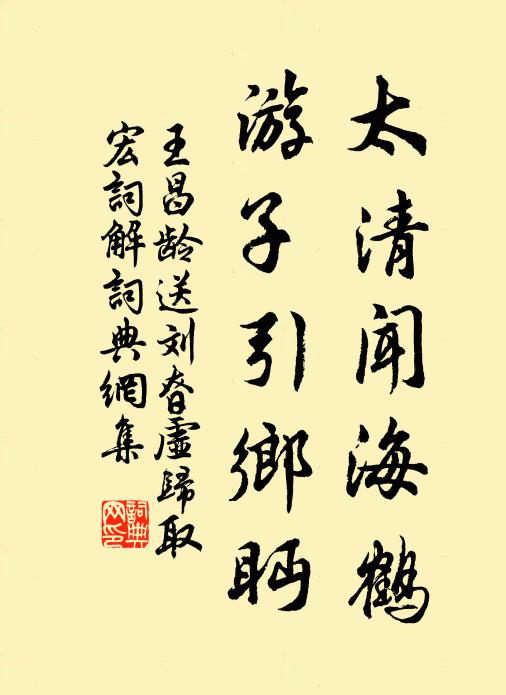 太清闻海鹤
游子引乡眄
王昌龄送刘眘虚归取
宏词解词典网集
词典网印